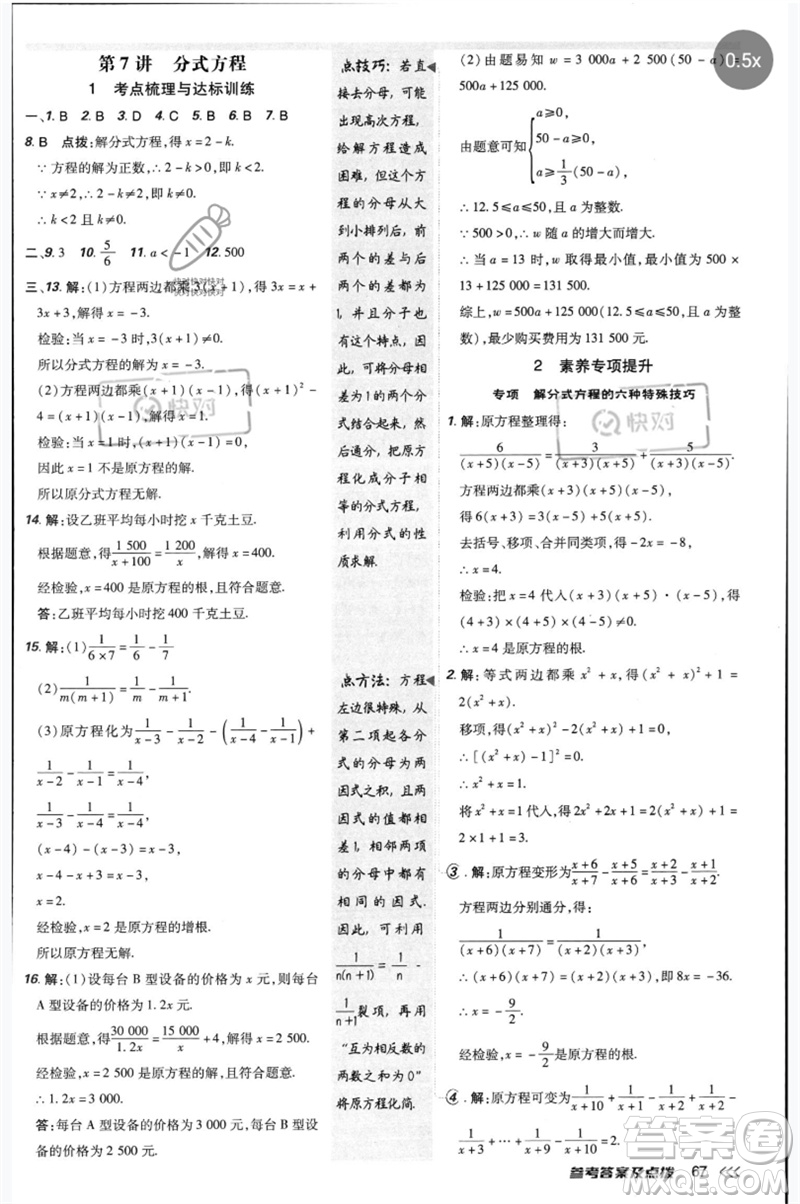 0.5x
第 7 讲 分式方程
1 考点梳理与达标训练
一、1. B 2. B 3. D 4. C 5. B 6. B 7. B
8. B 点拨:解分式方程,得 x=2-k.
∵方程的解为正数,∴2-k>0,即 k<2.
∵x≠2,∴2-k≠2,即 k≠0.
∴k<2 且 k≠0.
二、9. 3 10. 5/6 11. a<-1 12. 500
三、13. 解:(1)方程两边都乘 3(x+1),得 3x=x+
3x+3,解得 x=-3.
检验:当 x=-3 时,3(x+1)≠0.
所以分式方程的解为 x=-3.
(2)方程两边都乘(x+1)(x-1),得(x+1)²-
4=(x+1)(x-1),解得 x=1.
检验:当 x=1 时,(x+1)(x-1)=0.
因此 x=1 不是原方程的解.
所以原分式方程无解.
14. 解:设乙班平均每小时挖 x 千克土豆.
根据题意,得 1 500/(x+100) = 1 200/x,解得 x=400.
经检验,x=400 是原方程的根,且符合题意.
答:乙班平均每小时挖 400 千克土豆.
15. 解:(1) 1/(6×7) = 1/6 - 1/7
(2) 1/(m(m+1)) = 1/m - 1/(m+1)
(3)原方程化为 1/(x-3) - 1/(x-2) - (1/(x-4) - 1/(x-1)) +
1/(x-2) - 1/(x-1) = 1/(x-4),
1/(x-3) - 1/(x-4) = 1/(x-4),
(x-4)-(x-3)=x-3,
x-4-x+3=x-3,
x=2.
经检验,x=2 是原方程的增根.
所以原方程无解.
16. 解:(1)设每台 B 型设备的价格为 x 元,则每台
A 型设备的价格为 1.2x 元.
根据题意,得 30 000/1.2x = 15 000/x + 4,解得 x=2 500.
经检验,x=2 500 是原方程的解,且符合题意.
∴1.2x=3 000.
答:每台 A 型设备的价格为 3 000 元,每台 B 型设
备的价格为 2 500 元.
点技巧:若直
接去分母,可能
出现高次方程,
给解方程造成
困难,但这个方
程的分母从大
到小排列后,前
两个的差与后
两个的差都为
1,并且分子也
有这个特点,因
此,将分母相
差为1的两个分式
结合起来,然
后通分,把原方
程化成分子相
等的分式方程,
利用分式的性
质求解.
点方法:方程
左边很特殊,从
第二项起各分
式的分母为两
因式之积,且两
因式的值都相
差1,相邻两项
的分母中都有
相同的因式.
因此,可利用
1/(n(n+1)) = 1/n -
1/(n+1)裂项,再用
“互为相反数的
两数之和为0”
将原方程化简.
(2)由题意易知 w=3 000a+2 500(50-a)=
500a+125 000.
由题意可知 { a≥0, 50-a≥0, a≥1/3(50-a),
∴12.5≤a≤50,且 a 为整数.
∵500>0,∴w 随 a 的增大而增大.
∴当 a=13 时,w 取得最小值,最小值为 500×
13+125 000=131 500.
综上,w=500a+125 000(12.5≤a≤50,且 a 为整
数),最少购买费用为 131 500 元.
2 素养专项提升
专项 解分式方程的六种特殊技巧
1. 解:原方程整理得:
6/((x+5)(x-5)) = 3/((x+3)(x+5)) + 5/((x+3)(x-5)).
方程两边都乘(x+3)(x+5)(x-5),
得 6(x+3)=3(x-5)+5(x+5).
去括号、移项、合并同类项,得-2x=-8,
∴x=4.
检验:把 x=4 代入(x+3)(x+5)(x-5),得
(4+3)×(4+5)×(4-5)≠0.
∴x=4 为原方程的解.
2. 解:等式两边都乘 x²+x,得(x²+x)²+1=
2(x²+x).
移项,得(x²+x)²-2(x²+x)+1=0.
∴[(x²+x)-1]²=0.
∴x²+x=1.
将 x²+x=1 代入,得 2(x²+x)+1=
2×1+1=3.
3. 解:原方程变形为 (x+6)/(x+7) - (x+5)/(x+6) = (x+2)/(x+3) - (x+1)/(x+2).
方程两边分别通分,得:
1/((x+6)(x+7)) = 1/((x+2)(x+3)).
∴(x+6)(x+7)=(x+2)(x+3),即 8x=-36.
∴x=-9/2.
经检验,x=-9/2 是原方程的根.
4. 解:原方程可变为 1/(x+10) + 1/(x+1) - 1/(x+2) + 1/(x+2) -
1/(x+3) + … + 1/(x+9) - 1/(x+10) = 2.
参考答案及点拨 67
快对
快对快对快对
快对快对快对
答案圈
MXQE.COM